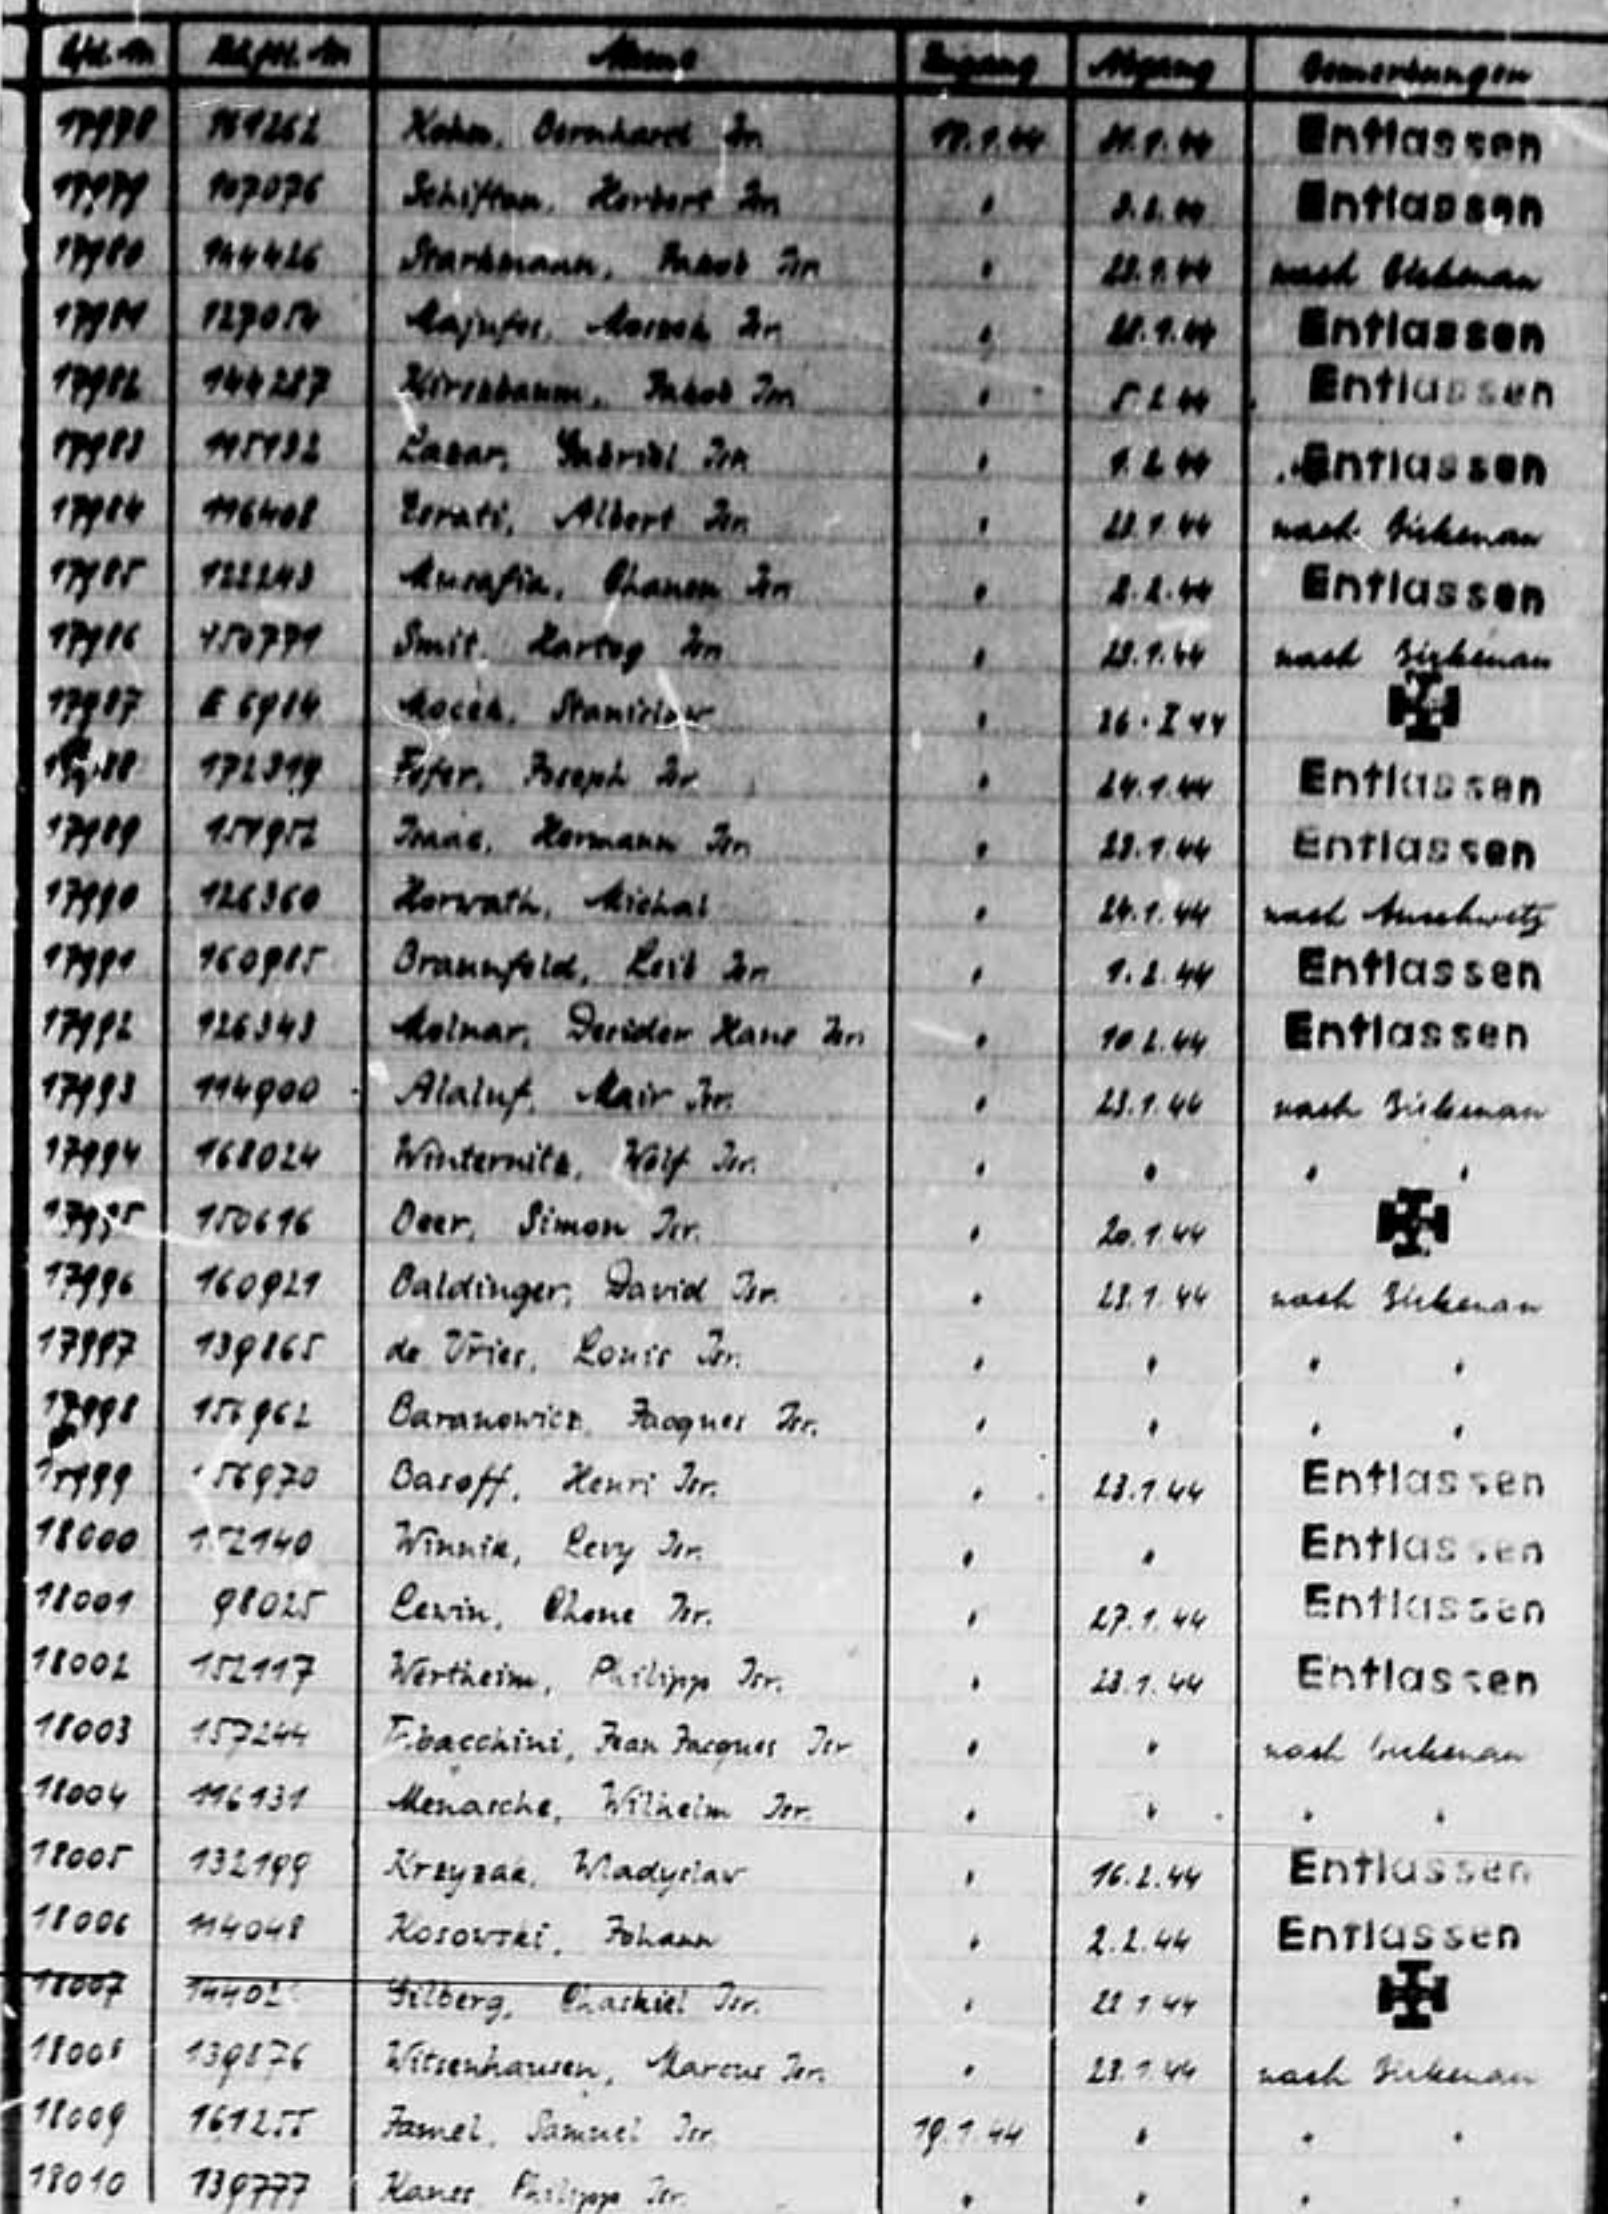 Lfd. Nr. Häftl. Nr. Name Zugang Abgang Bemerkungen
17978 161262 Kohn, Bernhard Isr. 18.1.44 Entlassen
17979 107076 Schiftan, Herbert Isr. " Entlassen
17980 144426 Starkmann, Jakob Isr. " 23.1.44 nach Birkenau
17981 127054 Majufes, Moszek Isr. " Entlassen
17982 144287 Hirszbaum, Jakob Isr. " 5.2.44 Entlassen
17983 115132 Lazar, Gabriel Isr. " 1.2.44 Entlassen
17984 116408 Albert Isr. " 23.1.44 nach Birkenau
17985 122243 Musafia, Chanen Isr. " 2.2.44 Entlassen
17986 150771 Smit, Hartog Isr. " 23.1.44 nach Birkenau
17987 E 6984 Mocek, Stanislaw " 26.I 44
17988 172319 Fefer, Joseph Isr. " 24.1.44 Entlassen
17989 151952 Isaac, Hermann Isr. " 23.1.44 Entlassen
17990 126360 Horwath, Michal " 24.1.44 nach Auschwitz
17991 160985 Braunfeld, Leib Isr. " 1.2.44 Entlassen
17992 126343 Molnar, Desider Hans Isr. " 10.2.44 Entlassen
17993 114900 Alaluf, Mair Isr. " 23.1.44 nach Birkenau
17994 168024 Winternitz, Wolf Isr. " " " "
17995 150616 Beer, Simon Isr. " 20.1.44
17996 160921 Baldinger, David Isr. " 23.1.44 nach Birkenau
17997 139865 de Vries, Louis Isr. " " " "
17998 156962 Baranowicz, Jacques Isr. " " " "
17999 156970 Basoff, Henri Isr. " 23.1.44 Entlassen
18000 152140 Winnik, Levy Isr. " " Entlassen
18001 98025 Lewin, Chone Isr. " 27.1.44 Entlassen
18002 152117 Wertheim, Philipp Isr. " 23.1.44 Entlassen
18003 157244 Jean Jacques Isr " " nach Birkenau
18004 116131 Menasche, Wilhelm Isr. " " " "
18005 132199 Krzyzak, Wladyslaw " 16.2.44 Entlassen
18006 114048 Kosowski, Johann " 2.2.44 Entlassen
18007 Gilberg, Chaskiel Isr. " 22 1 44
18008 139876 Witsenhausen, Marcus Isr. " 23.1.44 nach Birkenau
18009 161255 Jamel, Samuel Isr. 19.1.44 " " "
18010 139777 Kanes Philipp Isr. " " " "